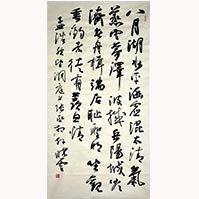 八月湖水平涵虛混太清氣
蒸雲夢澤波撼岳陽城欲
濟無舟楫端居耻聖明坐觀
垂釣者徒有羡魚情
孟浩然望洞庭上張丞相